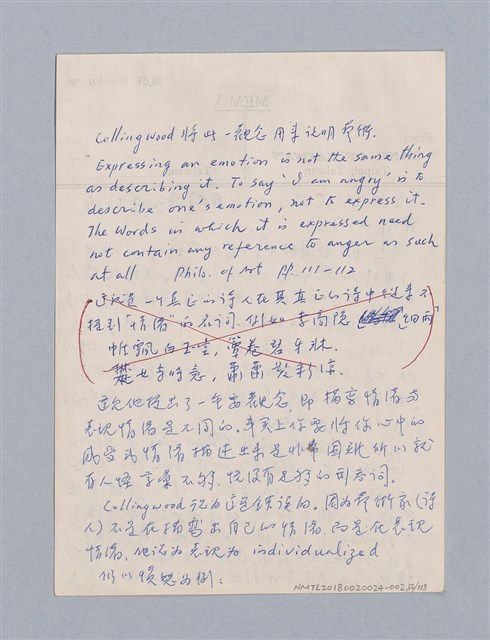 Collingwood 將此一觀念用來說明藝術.
"Expressing an emotion is not the same thing
as describing it. To say 'I am angry' is to
describe one's emotion, not to express it.
The words in which it is expressed need
not contain any reference to anger as such
at all Philo. of Art pp. 111-112
這就是一个真正的诗人在其真正的诗中從來不
提到"情緒"的名词. 例如 李商隐 細雨
帷飄白玉堂, 簟卷碧牙牀.
楚女當時意, 蕭蕭髮彩涼
這兒他提出了一重要觀念, 即描寫情緒与
表現情緒是不同的. 事实上你要將你心中的
感受或情緒描述出來是非常困難 所以就
有人怪字彙不夠, 说沒有足夠的形容词.
Collingwood 認为這是錯误的. 因为藝術家(诗
人)不是在描寫出自己的情緒, 而是在表現
情緒. 他認为表現为 individualized
仍以憤怒为例:
NMTL20180020024-002,12/113
MEMO